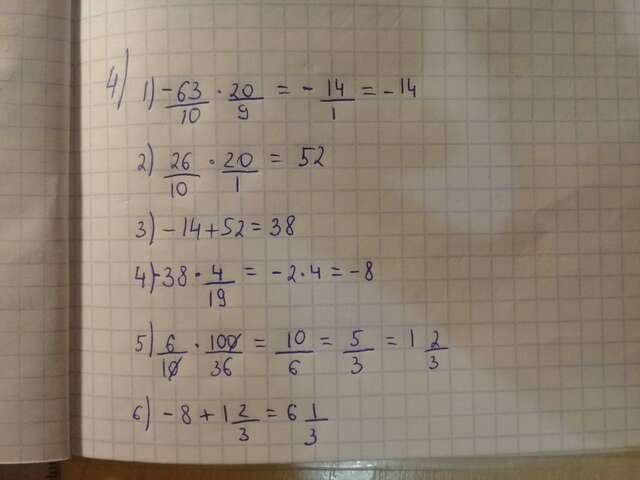 4) 1) -63/10 · 20/9 = - 14/1 = -14
2) 26/10 · 20/1 = 52
3) -14+52=38
4) -38 · 4/19 = -2·4=-8
5) 6/10 · 100/36 = 10/6 = 5/3 = 1 2/3
6) -8+1 2/3 = 6 1/3